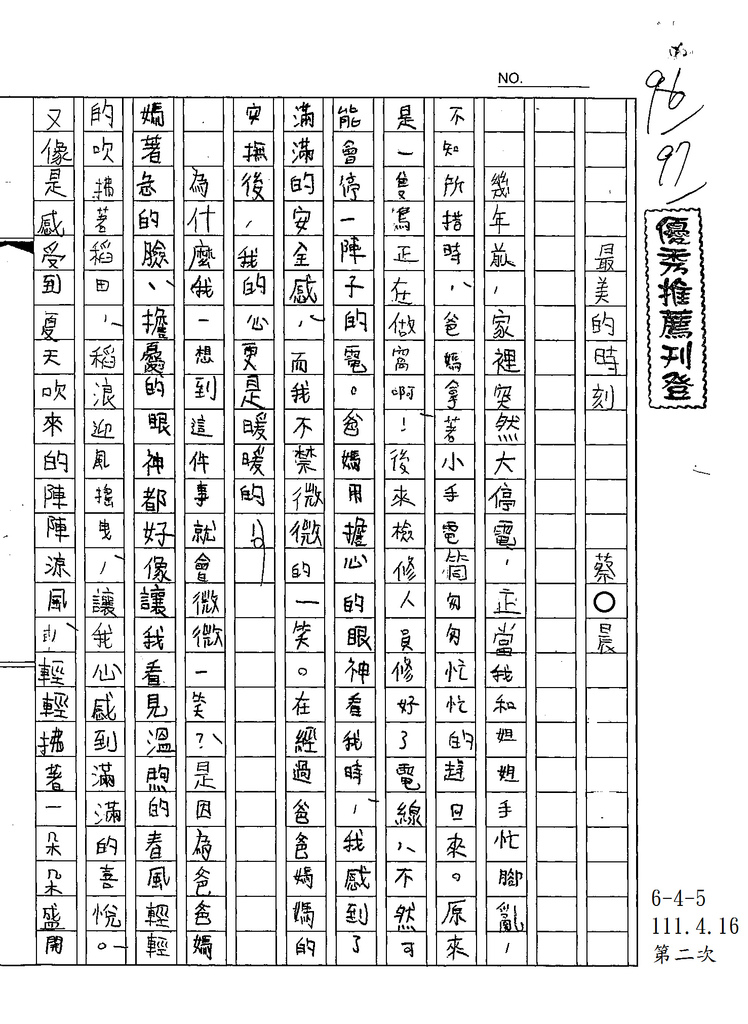 NO.
96
97
優秀推薦刊登
最美的時刻 蔡○晨
幾年前,家裡突然大停電,正當我和姐姐手忙腳亂,
不知所措時,爸媽拿著小手電筒匆匆忙忙的趕回來。原來,
是一隻鳥正在做窩啊!後來檢修人員修好了電線,不然可
能會停一陣子的電。爸媽用擔心的眼神看我時,我感到了
滿滿的安全感,而我不禁微微的一笑。在經過爸爸媽媽的
安撫後,我的心更是暖暖的。
為什麼我一想到這件事就會微微一笑?是因為爸爸媽
媽著急的臉、擔憂的眼神都好像讓我看見溫煦的春風輕輕
的吹拂著稻田,稻浪迎風搖曳,讓我心感到滿滿的喜悅。
又像是感受到夏天吹來的陣陣涼風,輕輕拂著一朵朵盛開
6-4-5
111.4.16
第二次